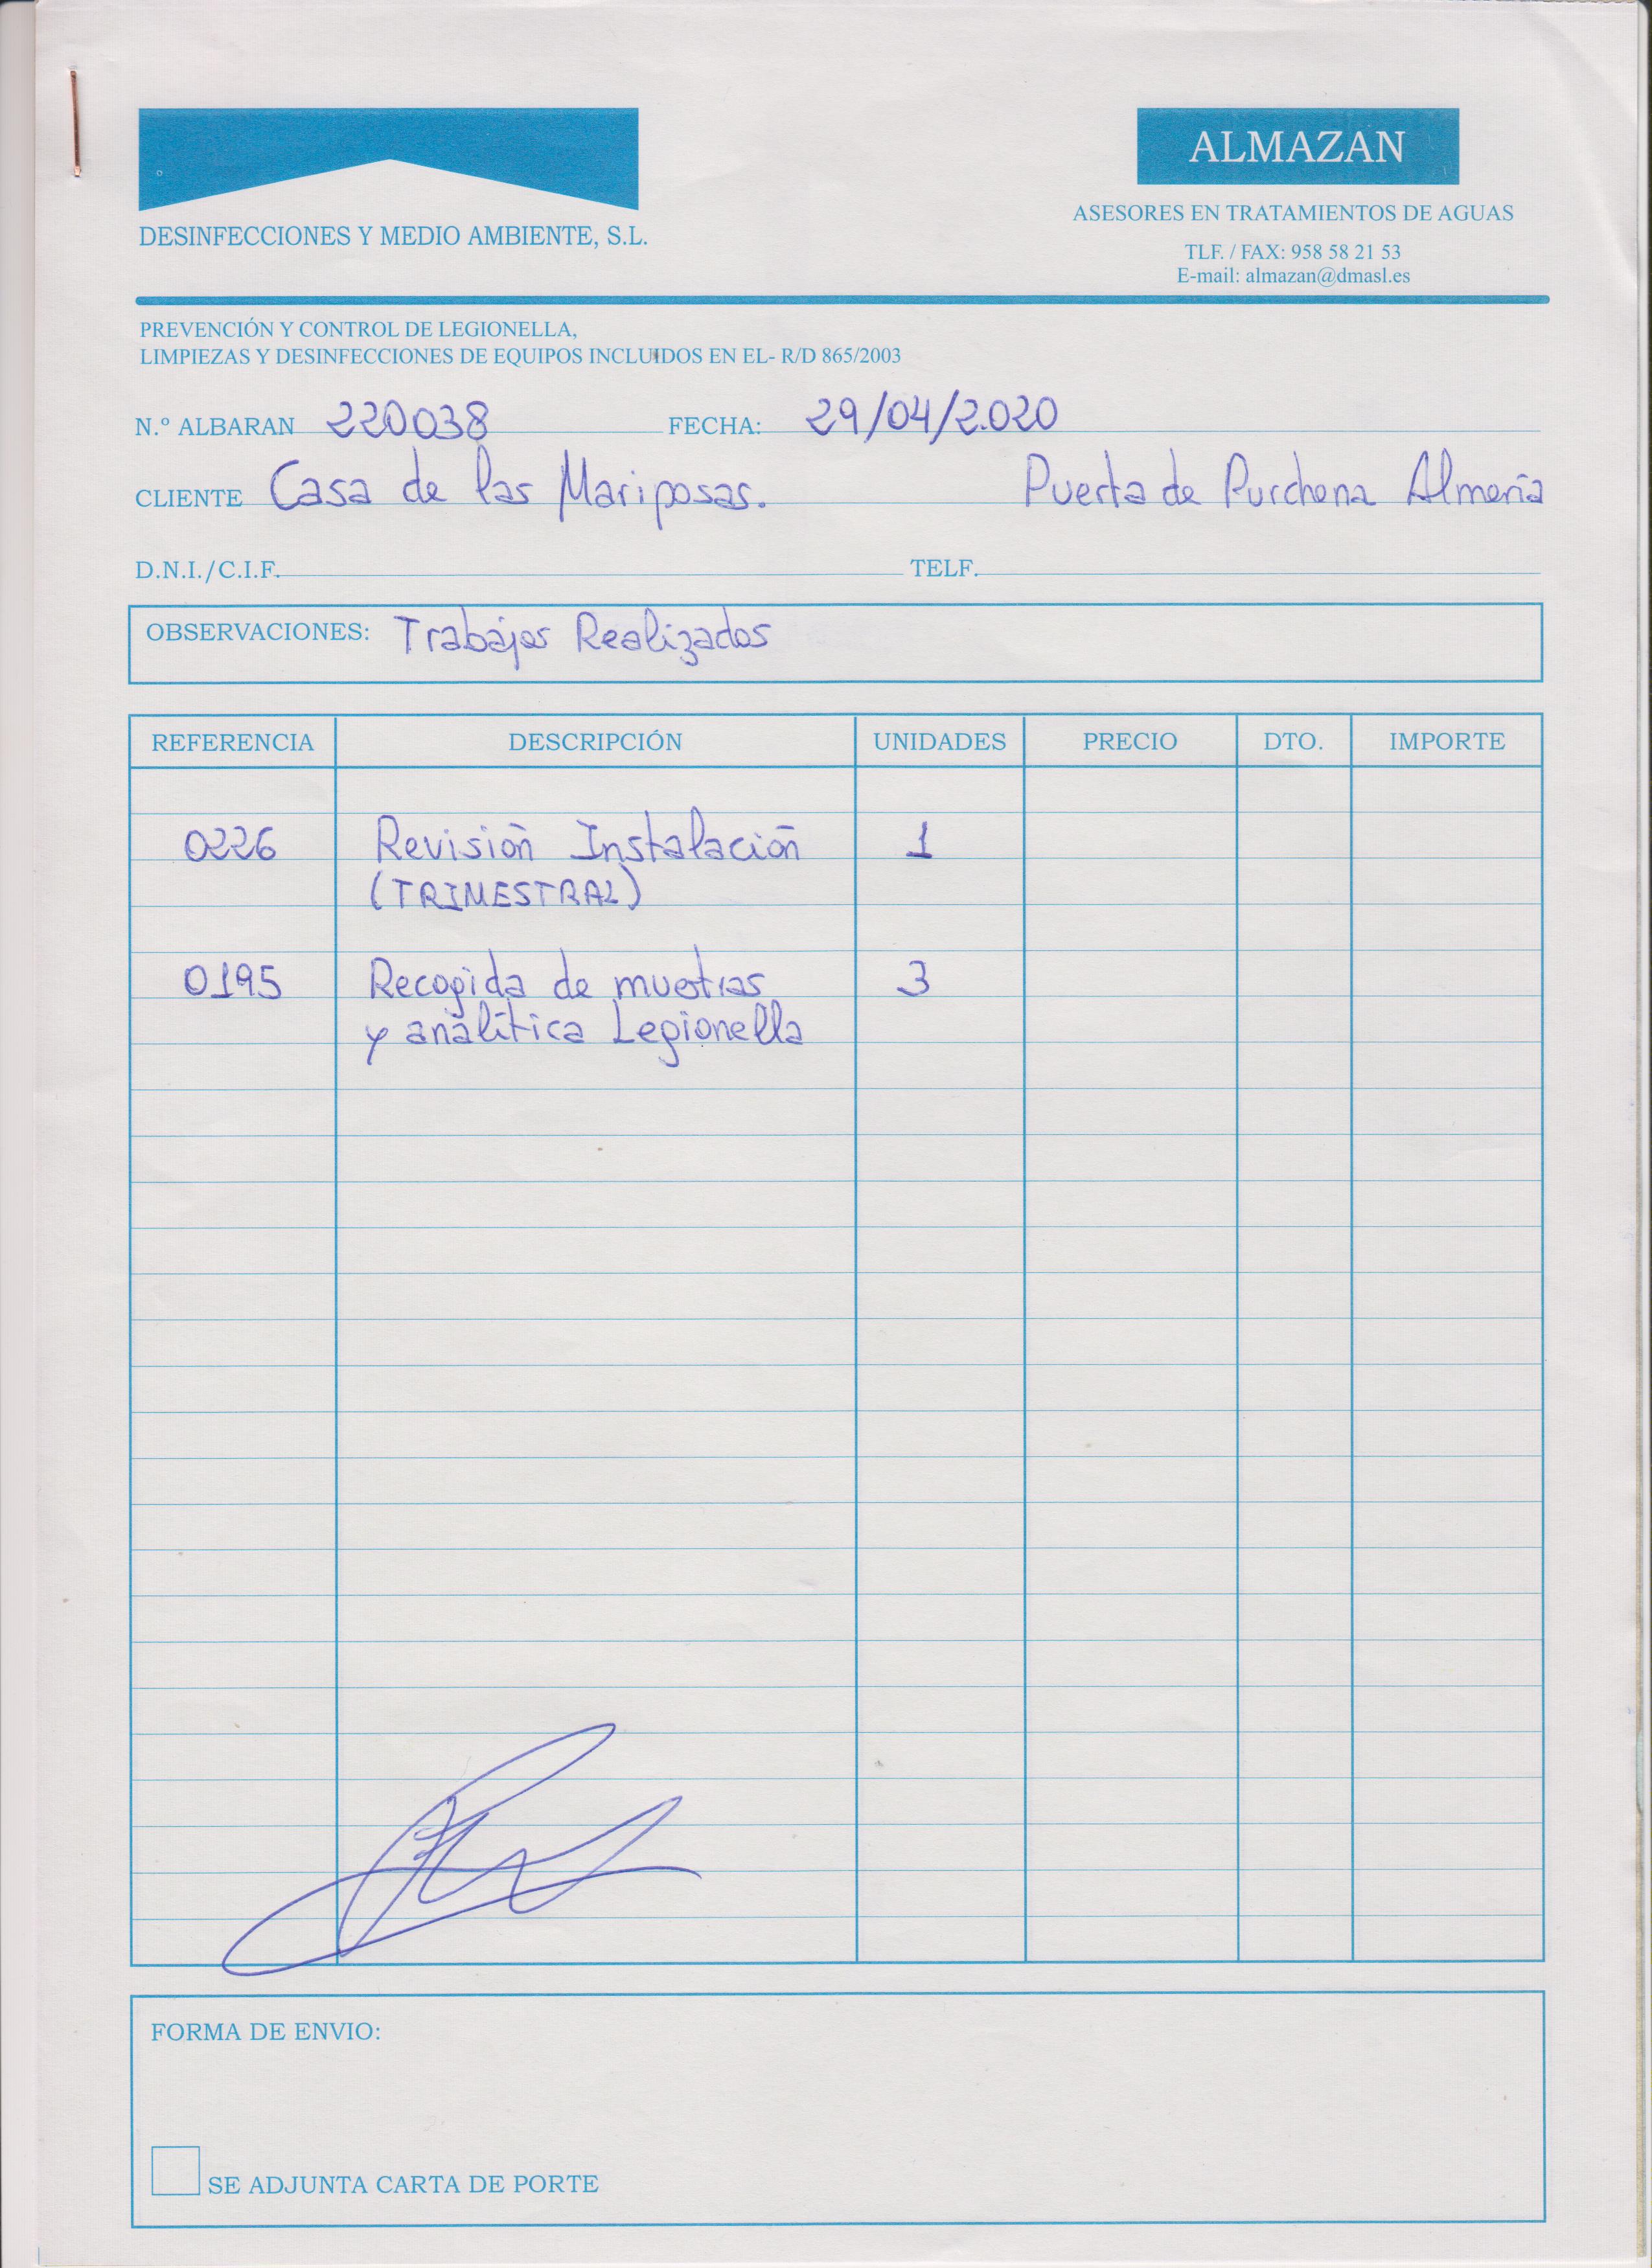 DESINFECCIONES Y MEDIO AMBIENTE, S.L.
ALMAZAN
ASESORES EN TRATAMIENTOS DE AGUAS
TLF. / FAX: 958 58 21 53
E-mail: almazan@dmasl.es
PREVENCIÓN Y CONTROL DE LEGIONELLA,
LIMPIEZAS Y DESINFECCIONES DE EQUIPOS INCLUIDOS EN EL- R/D 865/2003
N.º ALBARAN 220038 FECHA: 29/04/2.020
CLIENTE Casa de las Mariposas. Puerta de Purchena Almería
D.N.I./C.I.F. TELF.
OBSERVACIONES: Trabajos Realizados
REFERENCIA DESCRIPCIÓN UNIDADES PRECIO DTO. IMPORTE
0226 Revisión Instalación 1
(TRIMESTRAL)
0195 Recogida de muestras 3
y analítica Legionella
FORMA DE ENVIO:
SE ADJUNTA CARTA DE PORTE